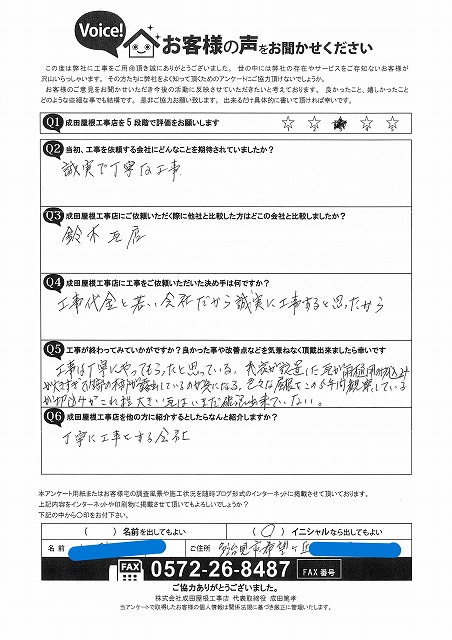 Voice!
お客様の声をお聞かせください
この度は弊社に工事をご用命頂き誠にありがとうございました。世の中には弊社の存在やサービスをご存知ないお客様が
沢山いらっしゃいます。その方たちに弊社をよく知って頂くためのアンケートにご協力頂けないでしょうか。
お客様のご意見をお聞かせいただき今後の活動に反映させていただきたいと考えております。良かったこと、嬉しかったこと
どのような些細な事でも結構です。是非ご協力お願い致します。出来るだけ具体的に書いて頂ければ幸いです。
Q1 成田屋根工事店を5段階で評価をお願いします ☆ ☆ ★ ☆ ☆
Q2 当初、工事を依頼する会社にどんなことを期待されていましたか？
誠実で丁寧な工事
Q3 成田屋根工事店にご依頼いただく際に他社と比較した方はどこの会社と比較しましたか？
鈴木瓦店
Q4 成田屋根工事店に工事をご依頼いただいた決め手は何ですか？
工事代金と若い会社だから誠実に工事すると思ったから
Q5 工事が終わってみていかがですか？良かった事や改善点などを気兼ねなく頂戴出来ましたら幸いです
工事は丁寧にやってもらったと思っている。我家が設置した瓦が
が大きすぎ
しているのが気になる。色々な屋根をこの5年間観察している
が切込みがこれ程大きい瓦はいまだ
Q6 成田屋根工事店を他の方に紹介するとしたらなんと紹介しますか？
丁寧に工事をする会社
本アンケート用紙またはお客様宅の調査風景や施工状況を随時ブログ形式のインターネットに掲載させて頂いております。
上記内容をインターネットや印刷物に掲載させて頂いてもよろしいでしょうか？
下記の中から〇印をお付下さい。
（　）名前を出してもよい （〇）イニシャルなら出してもよい
名前 ご住所 多治見市希望ヶ丘
FAX 0572-26-8487 FAX番号
ご協力ありがとうございました。
株式会社成田屋根工事店 代表取締役 成田篤孝
当アンケートで取得したお客様の個人情報は関係法規に基づき厳正に管理いたします。